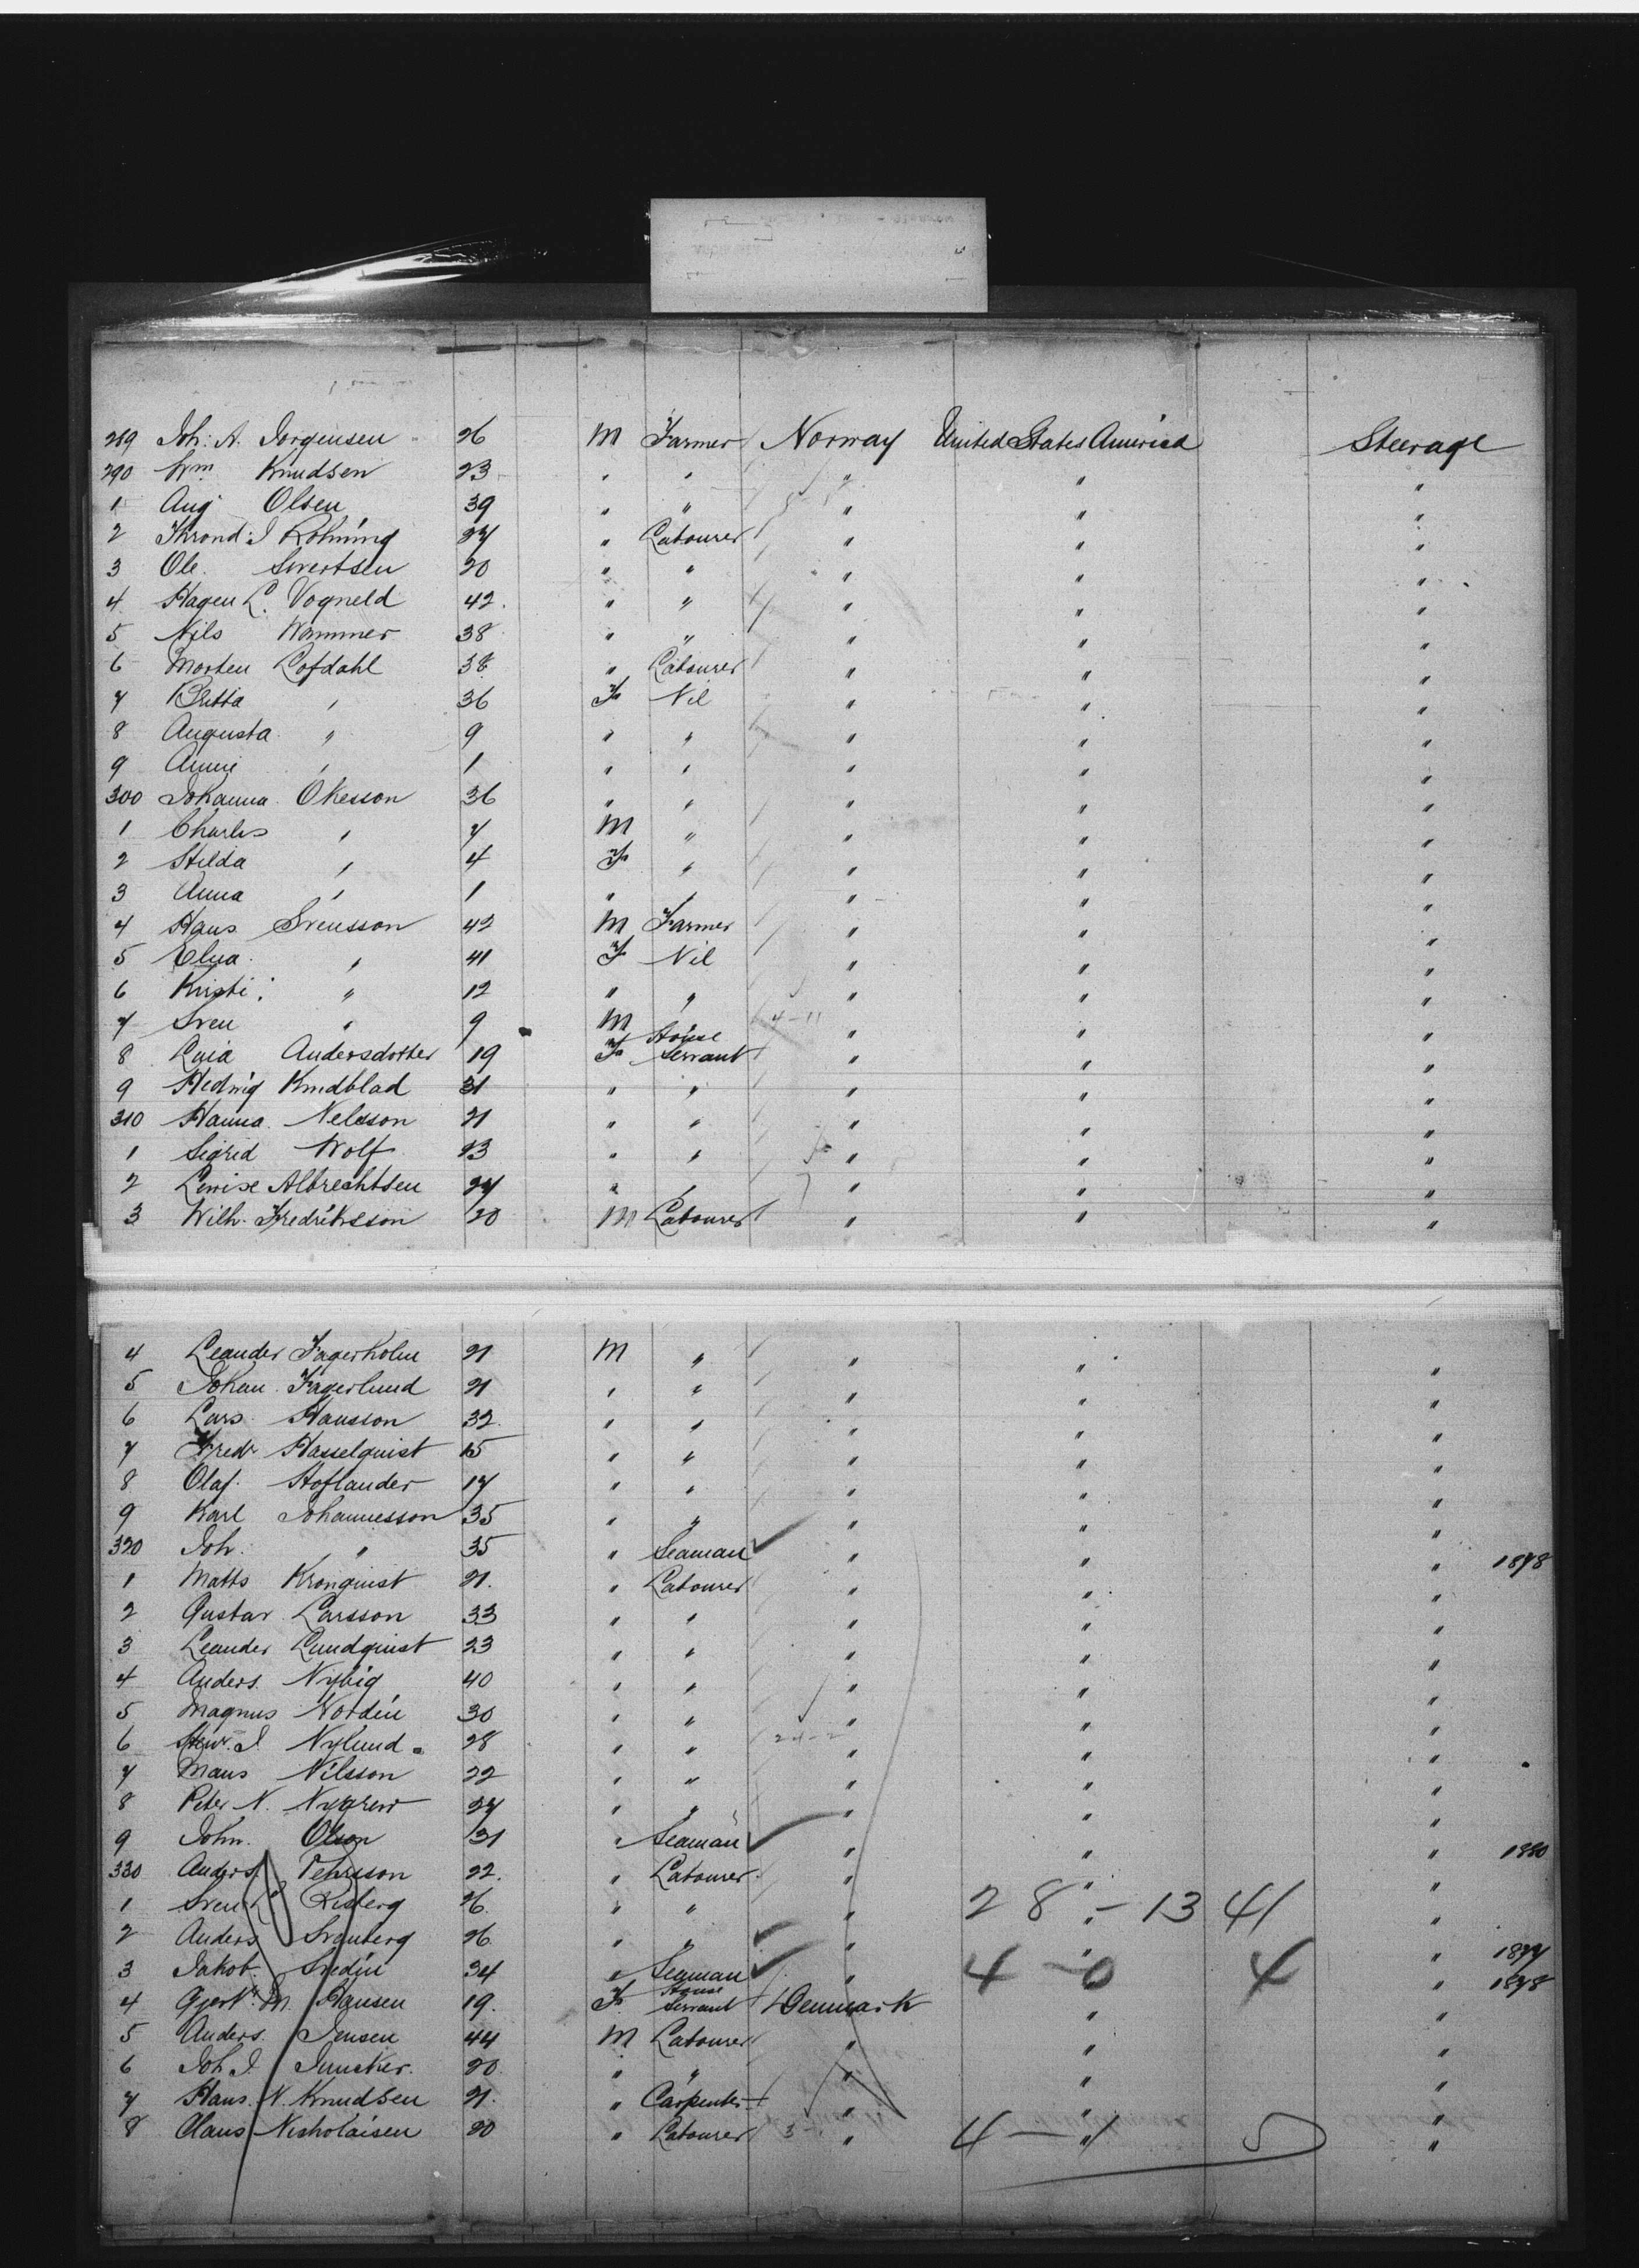 289 Joh: A. Jorgensen 26 M Farmer Norway United States America Steerage
290 Wm Knudsen 23 " " " " "
1 Aug Olsen 39 " " " " "
2 Thrond J Rohning 27 " Labourer " " "
3 Ole. Sivertsen 20 " " " " "
4 Hagen L. Vogneld 42. " " " " "
5 Nils Wammer 38 " " " " "
6 Morten Lofdahl 38 " Labourer " " "
7 Britta " 36 F Nil " " "
8 Augusta " 9 " " " " "
9 Anni " 1 " " " " "
300 Johanna Okesson 36 " " " " "
1 Charles " 7 M " " " "
2 Hilda " 4 F " " " "
3 Anna " 1 " " " " "
4 Hans Svensson 42 M Farmer " " "
5 Elna " 41 F Nil " " "
6 Kirsti " 12 " " " " "
7 Sven " 9 M 4-11 " " "
8 Andersdotter 19 F House Servant " " "
9 Hedwig Kindblad 31 " " " " "
310 Hanna Nelsson 21 " " " " "
1 Sigrid Wolf 23 " " " " "
2 Lewise Albrechtsen 27 " " " " "
3 Wilh. Fredriksson 20 M Labourer " " "
4 Leander Fagerholm 21 M " " " "
5 Johan Fagerlund 21 " " " " "
6 Lars Hansson 32. " " " " "
7 Fredr Hasselquist 15 " " " " "
8 Olaf. Hoflander 17 " " " " "
9 Karl Johannesson 35 " " " " "
320 Joh. " 35 " Seaman " " " 1878
1 Matts Kronquist 21. " Labourer " " "
2 Gustav Larsson 33 " " " " "
3 Leander Lundquist 23 " " " " "
4 Anders. Nybig 40 " " " " "
5 Magnus Nordin 30 " " " " "
6 J. Nylund 28 " " " " "
7 Mans Nilsson 22 " " " " "
8 Peter N. Nygren 27 " " " " "
9 John. Olson 31 " Seaman " " " 1880
330 Anders Pehrsson 22. " Labourer " " "
1 Sven Risberg 26. " " " 28 - 13 41 "
2 Anders Svanberg 26 " " " " " 1877
3 Jakob. Sredin 34 " Seaman " 4 - 0 4 " 1878
4 Gjert. M. Hansen 19. F House Servant Denmark " "
5 Anders. Jensen 44 M Labourer " " "
6 Joh J. Juncker. 20 " " " " "
7 Hans. N. Knudsen 21. " Carpenter " " "
8 Claus Nicholaisen 20 " Labourer " 4 - 1 5 "